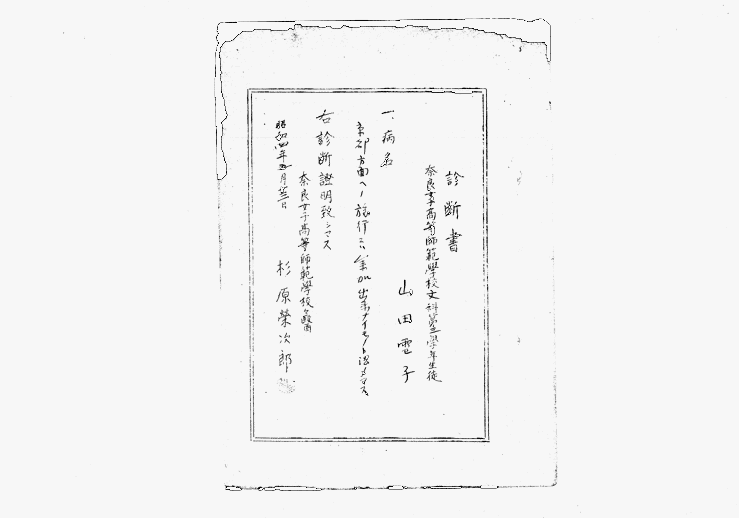 診断書
奈良女子高等師範學校文科第三學年生徒
山田雪子
一、病名
京都方面ヘノ旅行ニハ参加出来ナイモノト認メマス
右診断證明致シマス
昭和四年五月廿三日
奈良女子高等師範學校醫
杉原榮次郎